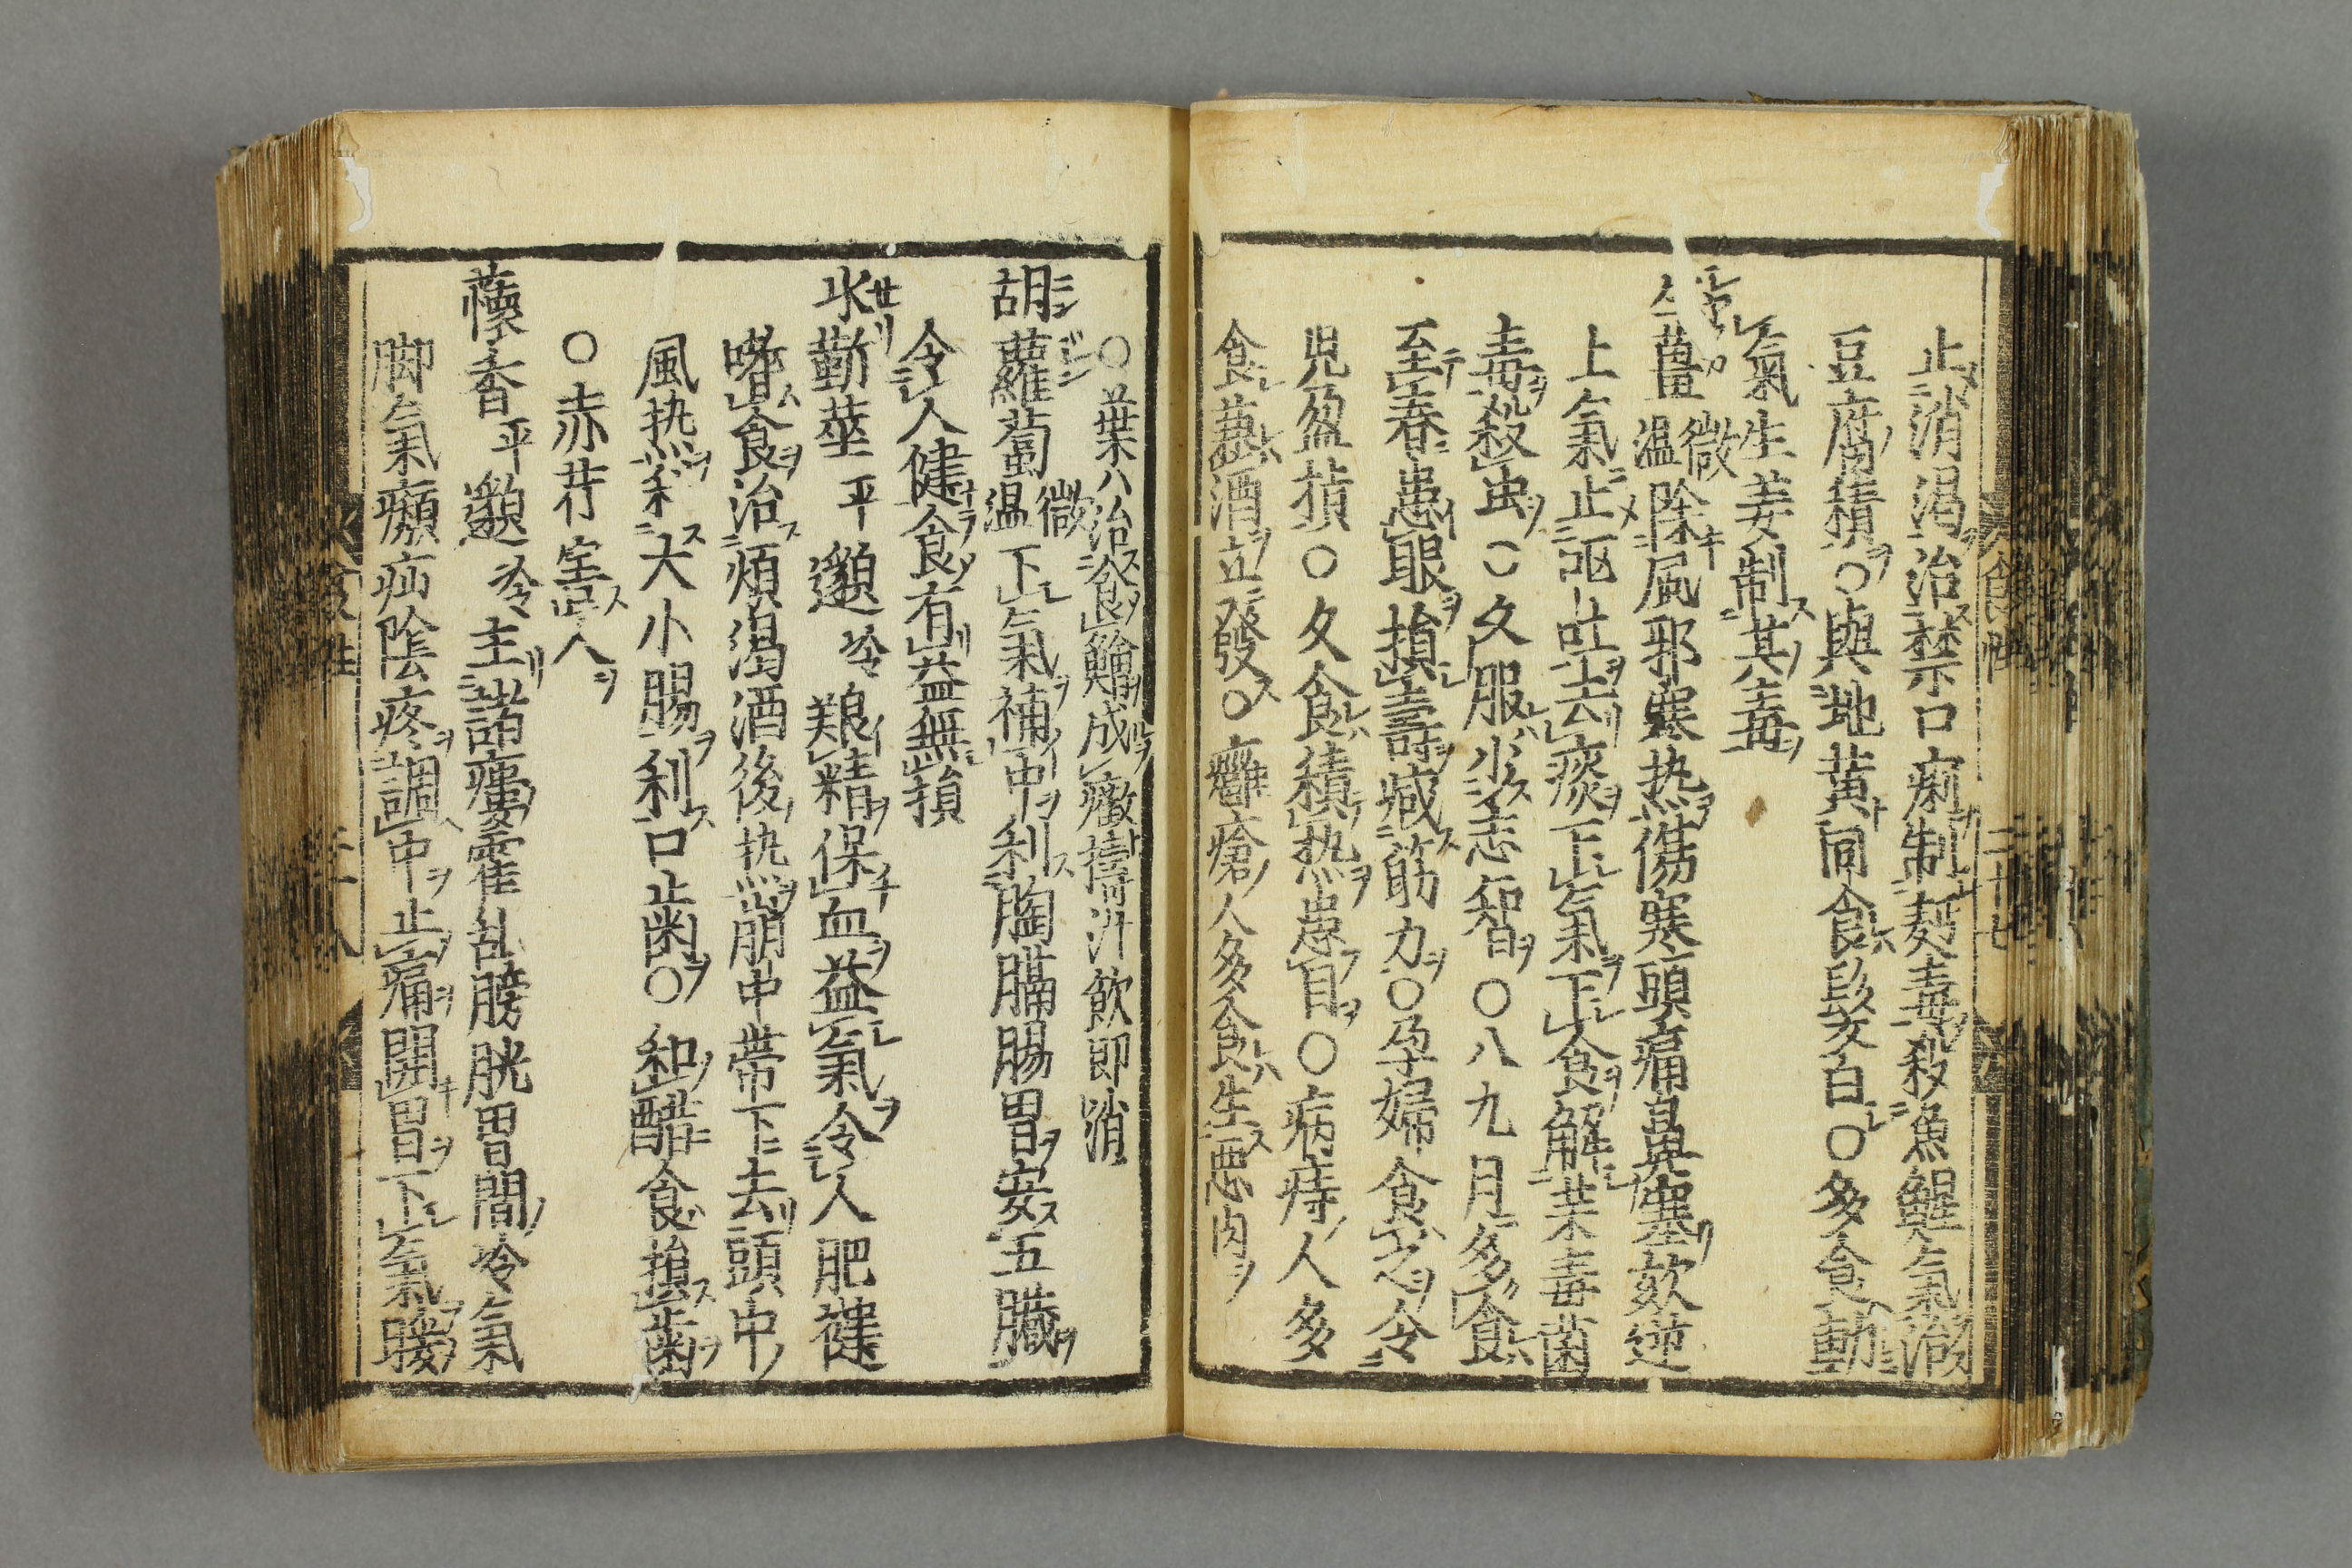 止消渇治禁口痢制麪毒殺魚鯹氣
豆腐積〇與地黄同食髪白〇多食動
氣生姜制其毒
生薑微温除風邪寒热傷寒頭痛鼻塞欬逆
上氣止嘔吐去痰下氣下食解菜毒菌
毒殺虫〇久服少志智〇八九月多食
至春患眼損壽减筋力〇孕婦食之令
児盈指〇久食積热患目〇病痔人多
食兼酒立發〇癰瘡人多食生悪肉
〇葉ハ治食鱠成癥擣汁飲即消
胡蘿蔔微温下氣補中利胸膈腸胃安五臓
令人健食有益無損
水蘄莖平邈冷艱精保血益氣令人肥健
嗜食治煩渇酒後热崩中帯下去頭中
風热利大小腸利口歯〇和醋食損歯
〇赤芹害人
蘹香平邈冷主諸瘻霍乱膀胱胃間冷氣
脚氣㿗疝陰疼調中止痛開胃下氣暖
食性
二十七